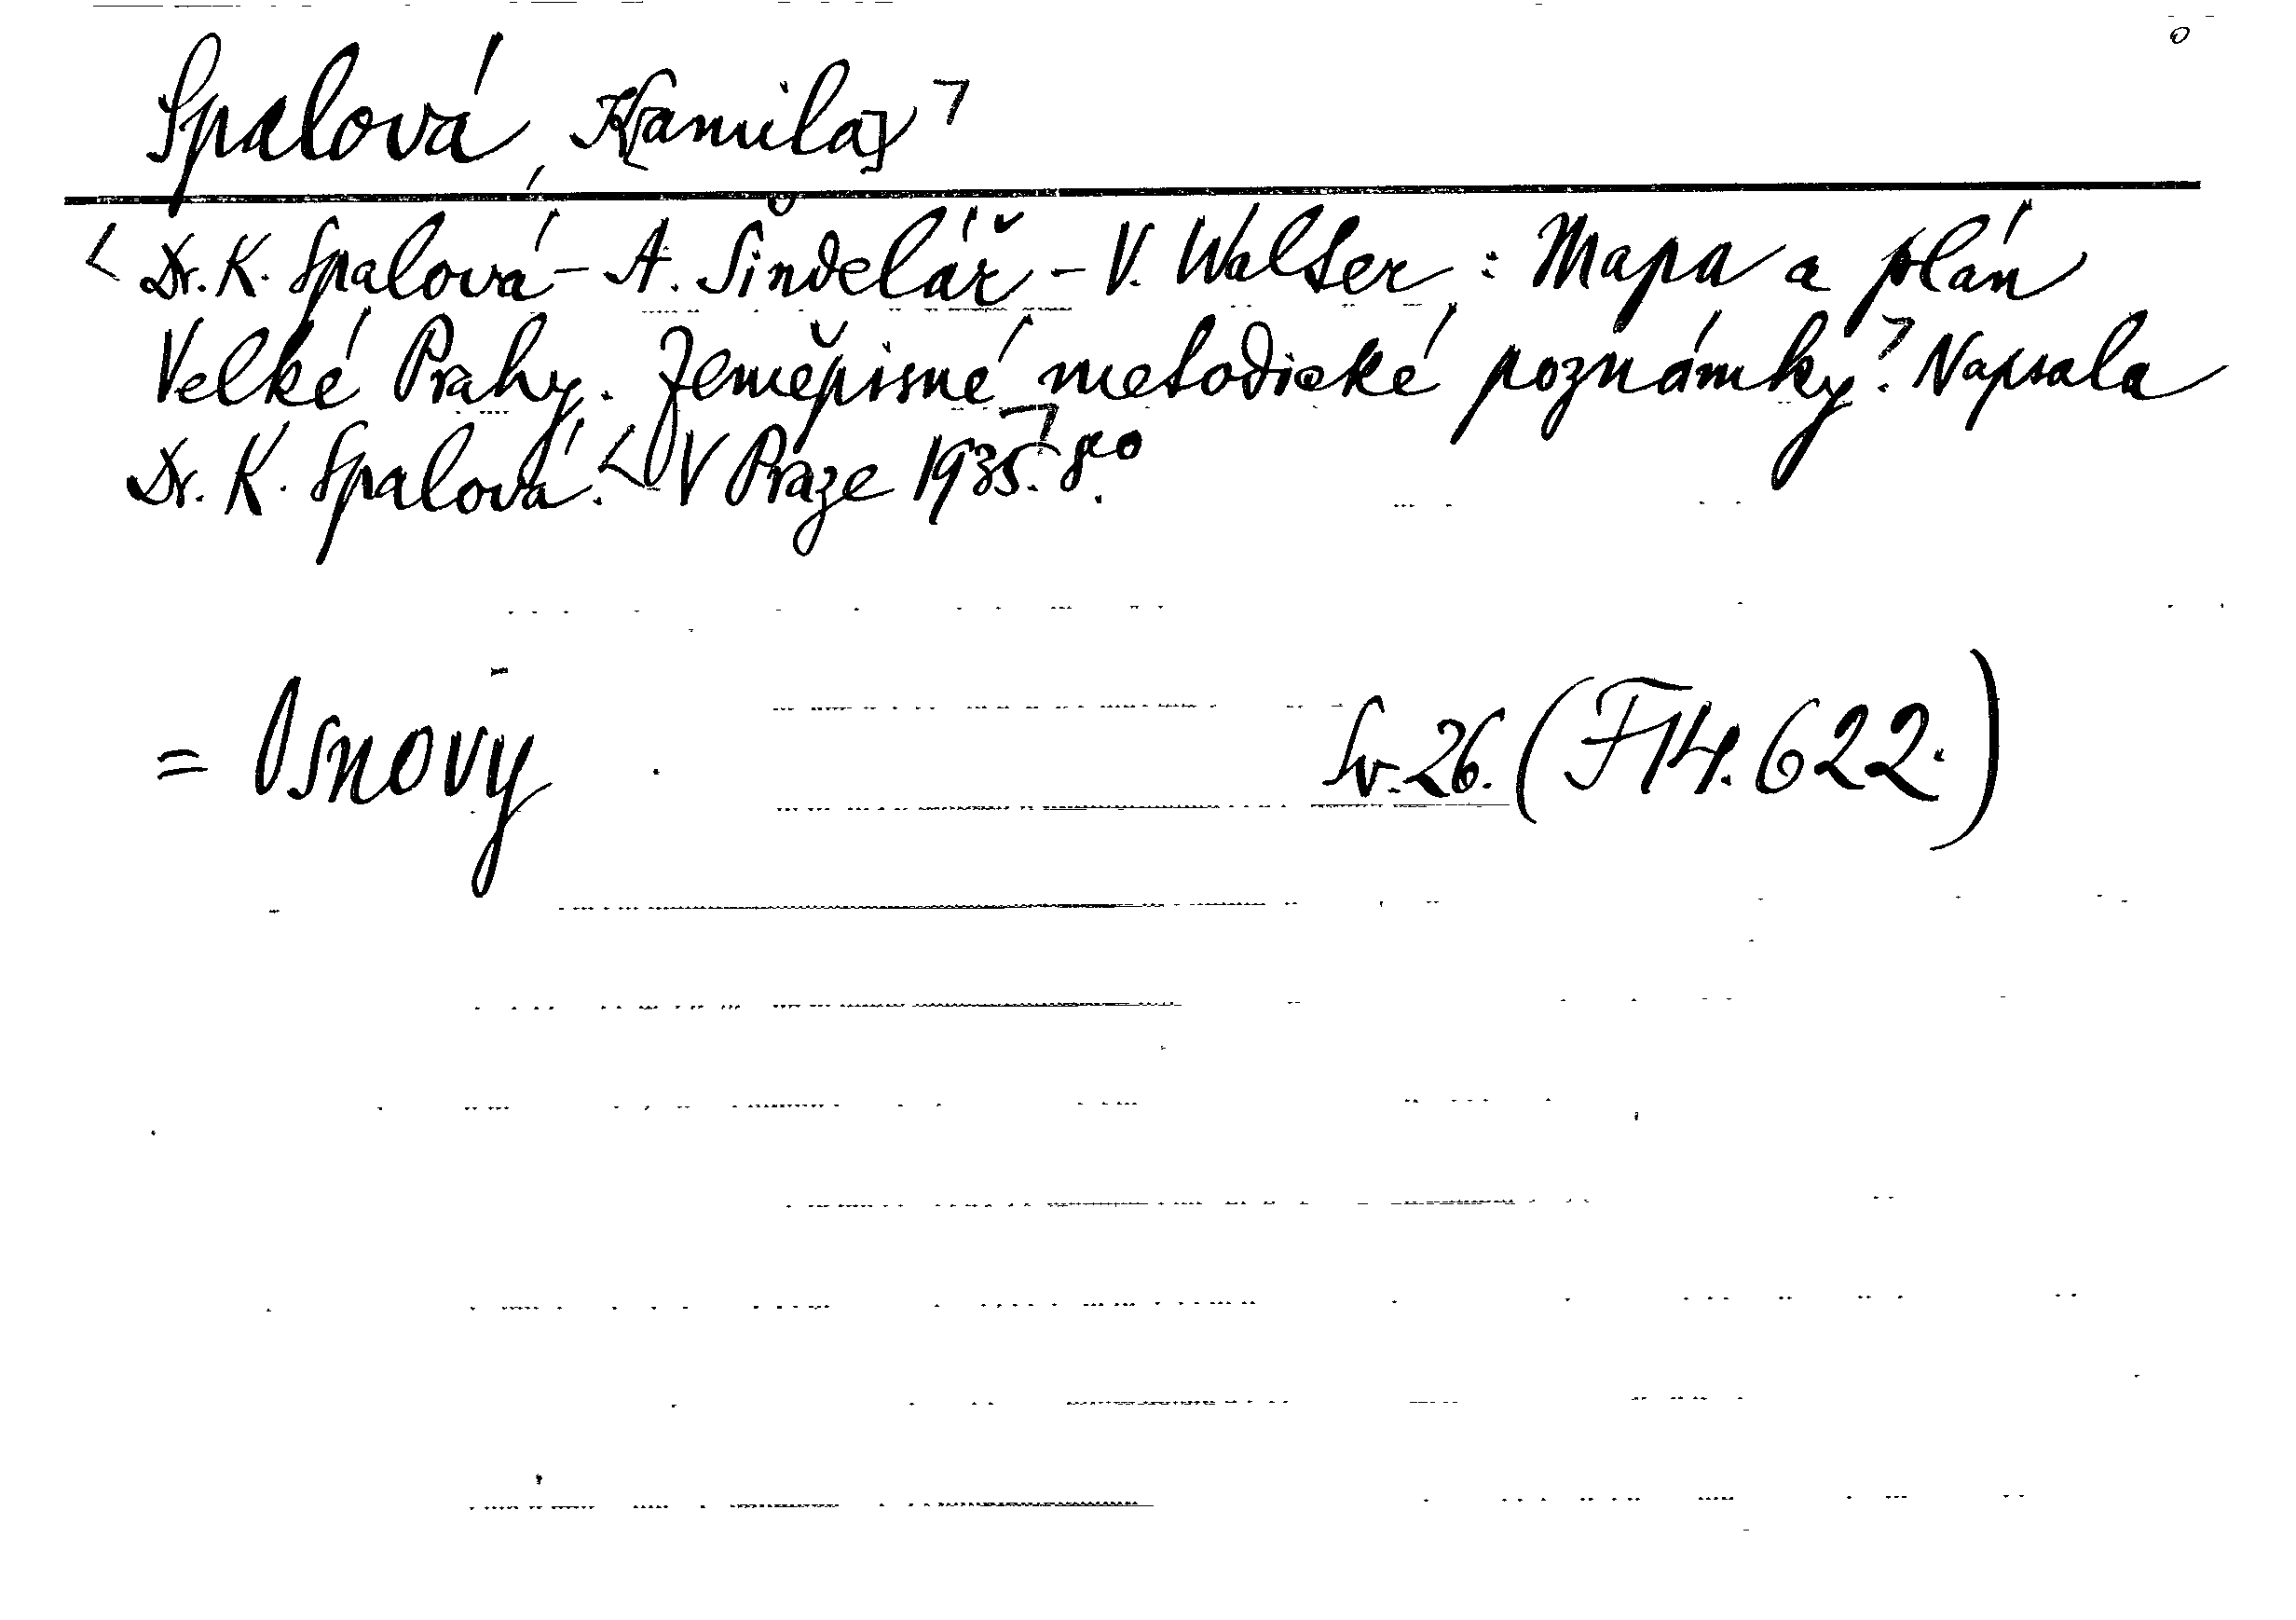 Spalová, K[amila]
Dr. K. Spalová - A. Šindelář - V. Walter : Mapa a plán
Velké Prahy. Zeměpisné metodické poznámky. Napsala
Dr. K. Spalová. V Praze 1935. 8°.
= Osnovy Sv. 26. (F14.622.)